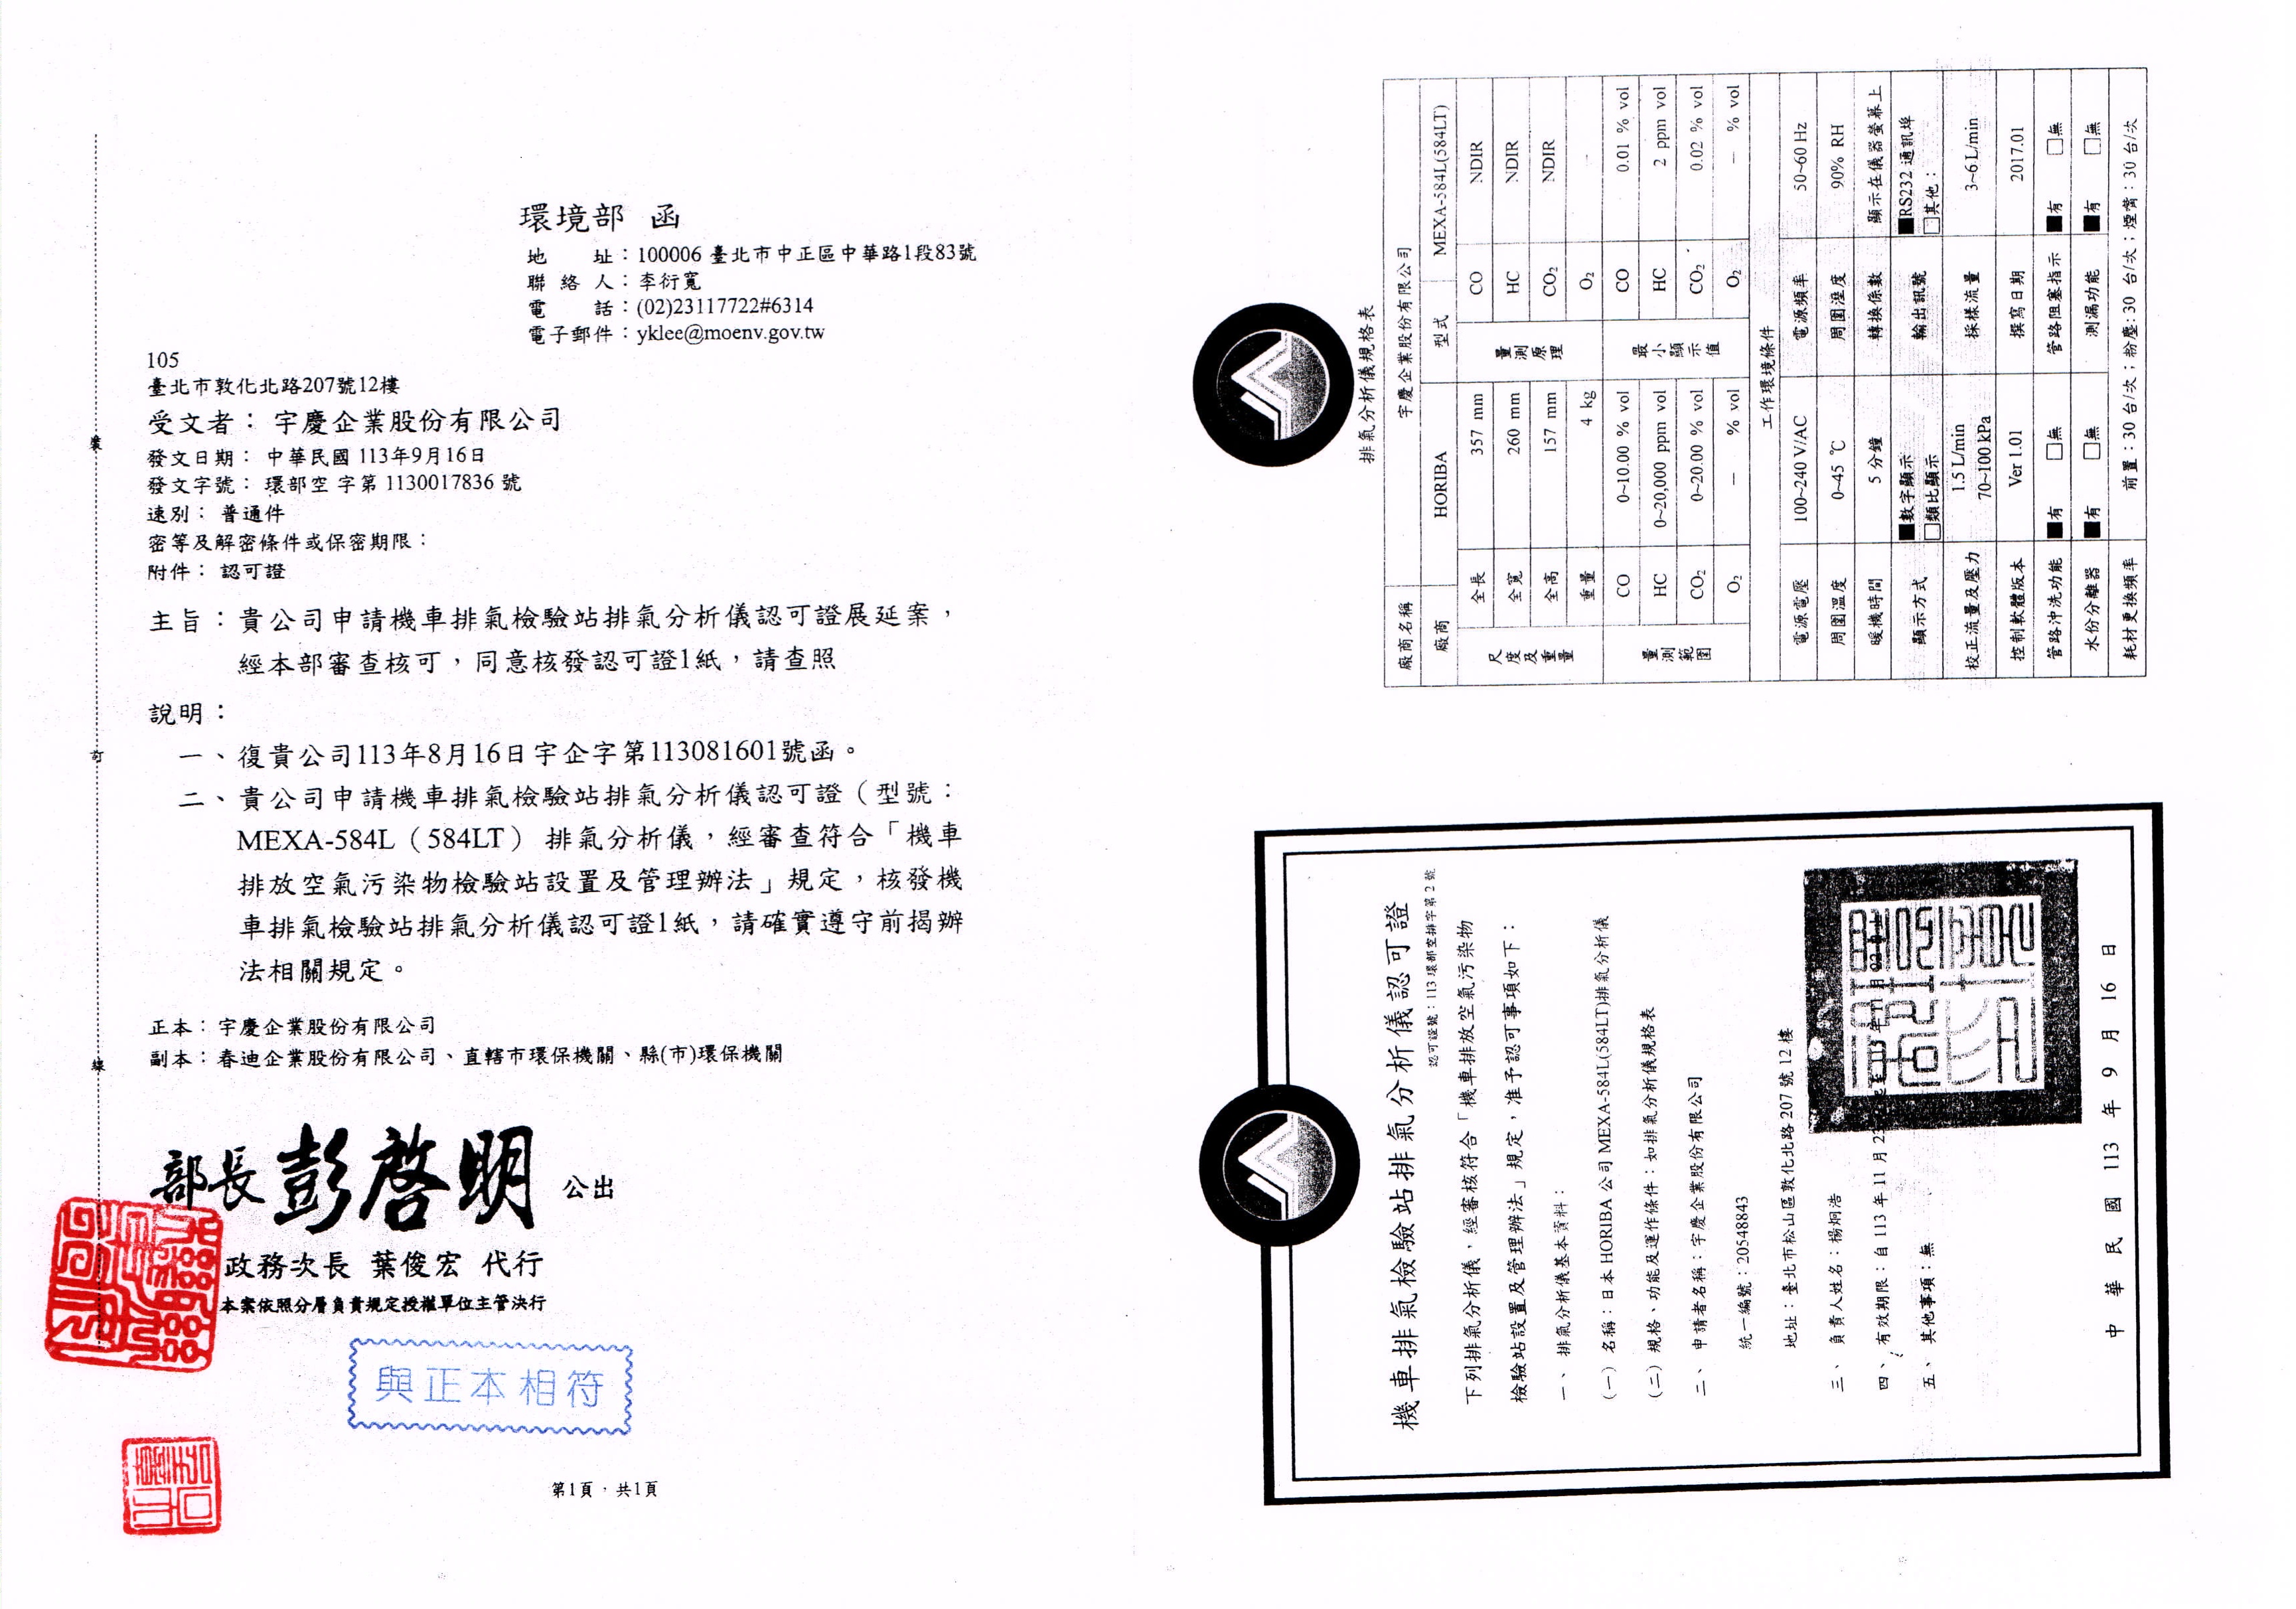 環境部 函
地 址：100006 臺北市中正區中華路1段83號
聯 絡 人：李衍寬
電 話：(02)23117722#6314
電子郵件：yklee@moenv.gov.tw
105
臺北市敦化北路207號12樓
受文者： 宇慶企業股份有限公司
發文日期： 中華民國 113年9月16日
發文字號： 環部空 字第 1130017836 號
速別： 普通件
密等及解密條件或保密期限：
附件： 認可證
主旨：貴公司申請機車排氣檢驗站排氣分析儀認可證展延案，
經本部審查核可，同意核發認可證1紙，請查照
說明：
一、復貴公司113年8月16日宇企字第113081601號函。
二、貴公司申請機車排氣檢驗站排氣分析儀認可證（型號：
MEXA-584L（584LT） 排氣分析儀，經審查符合「機車
排放空氣污染物檢驗站設置及管理辦法」規定，核發機
車排氣檢驗站排氣分析儀認可證1紙，請確實遵守前揭辦
法相關規定。
正本：宇慶企業股份有限公司
副本：春迪企業股份有限公司、直轄市環保機關、縣(市)環保機關
裝
訂
線
部長 彭啓明 公出
政務次長 葉俊宏 代行
本案依照分層負責規定授權單位主管決行
與正本相符
第1頁，共1頁
排氣分析儀規格表
廠商名稱 宇慶企業股份有限公司
廠商 HORIBA 型式 MEXA-584L(584LT)
尺度及重量 全長 357 mm 量測原理 CO NDIR
全寬 260 mm HC NDIR
全高 157 mm CO₂ NDIR
重量 4 kg O₂ -
量測範圍 CO 0~10.00 % vol 最小顯示值 CO 0.01 % vol
HC 0~20,000 ppm vol HC 2 ppm vol
CO₂ 0~20.00 % vol CO₂ 0.02 % vol
O₂ — % vol O₂ — % vol
工作環境條件
電源電壓 100~240 V/AC 電源頻率 50~60 Hz
周圍溫度 0~45 ℃ 周圍溼度 90% RH
暖機時間 5 分鐘 轉換係數 顯示在儀器螢幕上
顯示方式 ■數字顯示 □類比顯示 輸出訊號 ■RS232 通訊埠 □其他：
校正流量及壓力 1.5 L/min 70~100 kPa 採樣流量 3~6 L/min
控制軟體版本 Ver 1.01 撰寫日期 2017.01
管路沖洗功能 ■有 □無 管路阻塞指示 ■有 □無
水份分離器 ■有 □無 測漏功能 ■有 □無
耗材更換頻率 前置：30 台/次；粉塵：30 台/次；煙霧：30 台/次
機車排氣檢驗站排氣分析儀認可證
認可證號：113 環部空排字第 2 號
下列排氣分析儀，經審核符合「機車排放空氣污染物
檢驗站設置及管理辦法」規定，准予認可事項如下：
一、 排氣分析儀基本資料：
（一） 名稱：日本 HORIBA 公司 MEXA-584L(584LT)排氣分析儀
（二） 規格、功能及運作條件：如排氣分析儀規格表
二、 申請者名稱：宇慶企業股份有限公司
統一編號：20548843
地址：臺北市松山區敦化北路 207 號 12 樓
三、 負責人姓名：楊炯浩
四、 有效期限：自 113 年 11 月 23
五、 其他事項：無
中 華 民 國 113 年 9 月 16 日